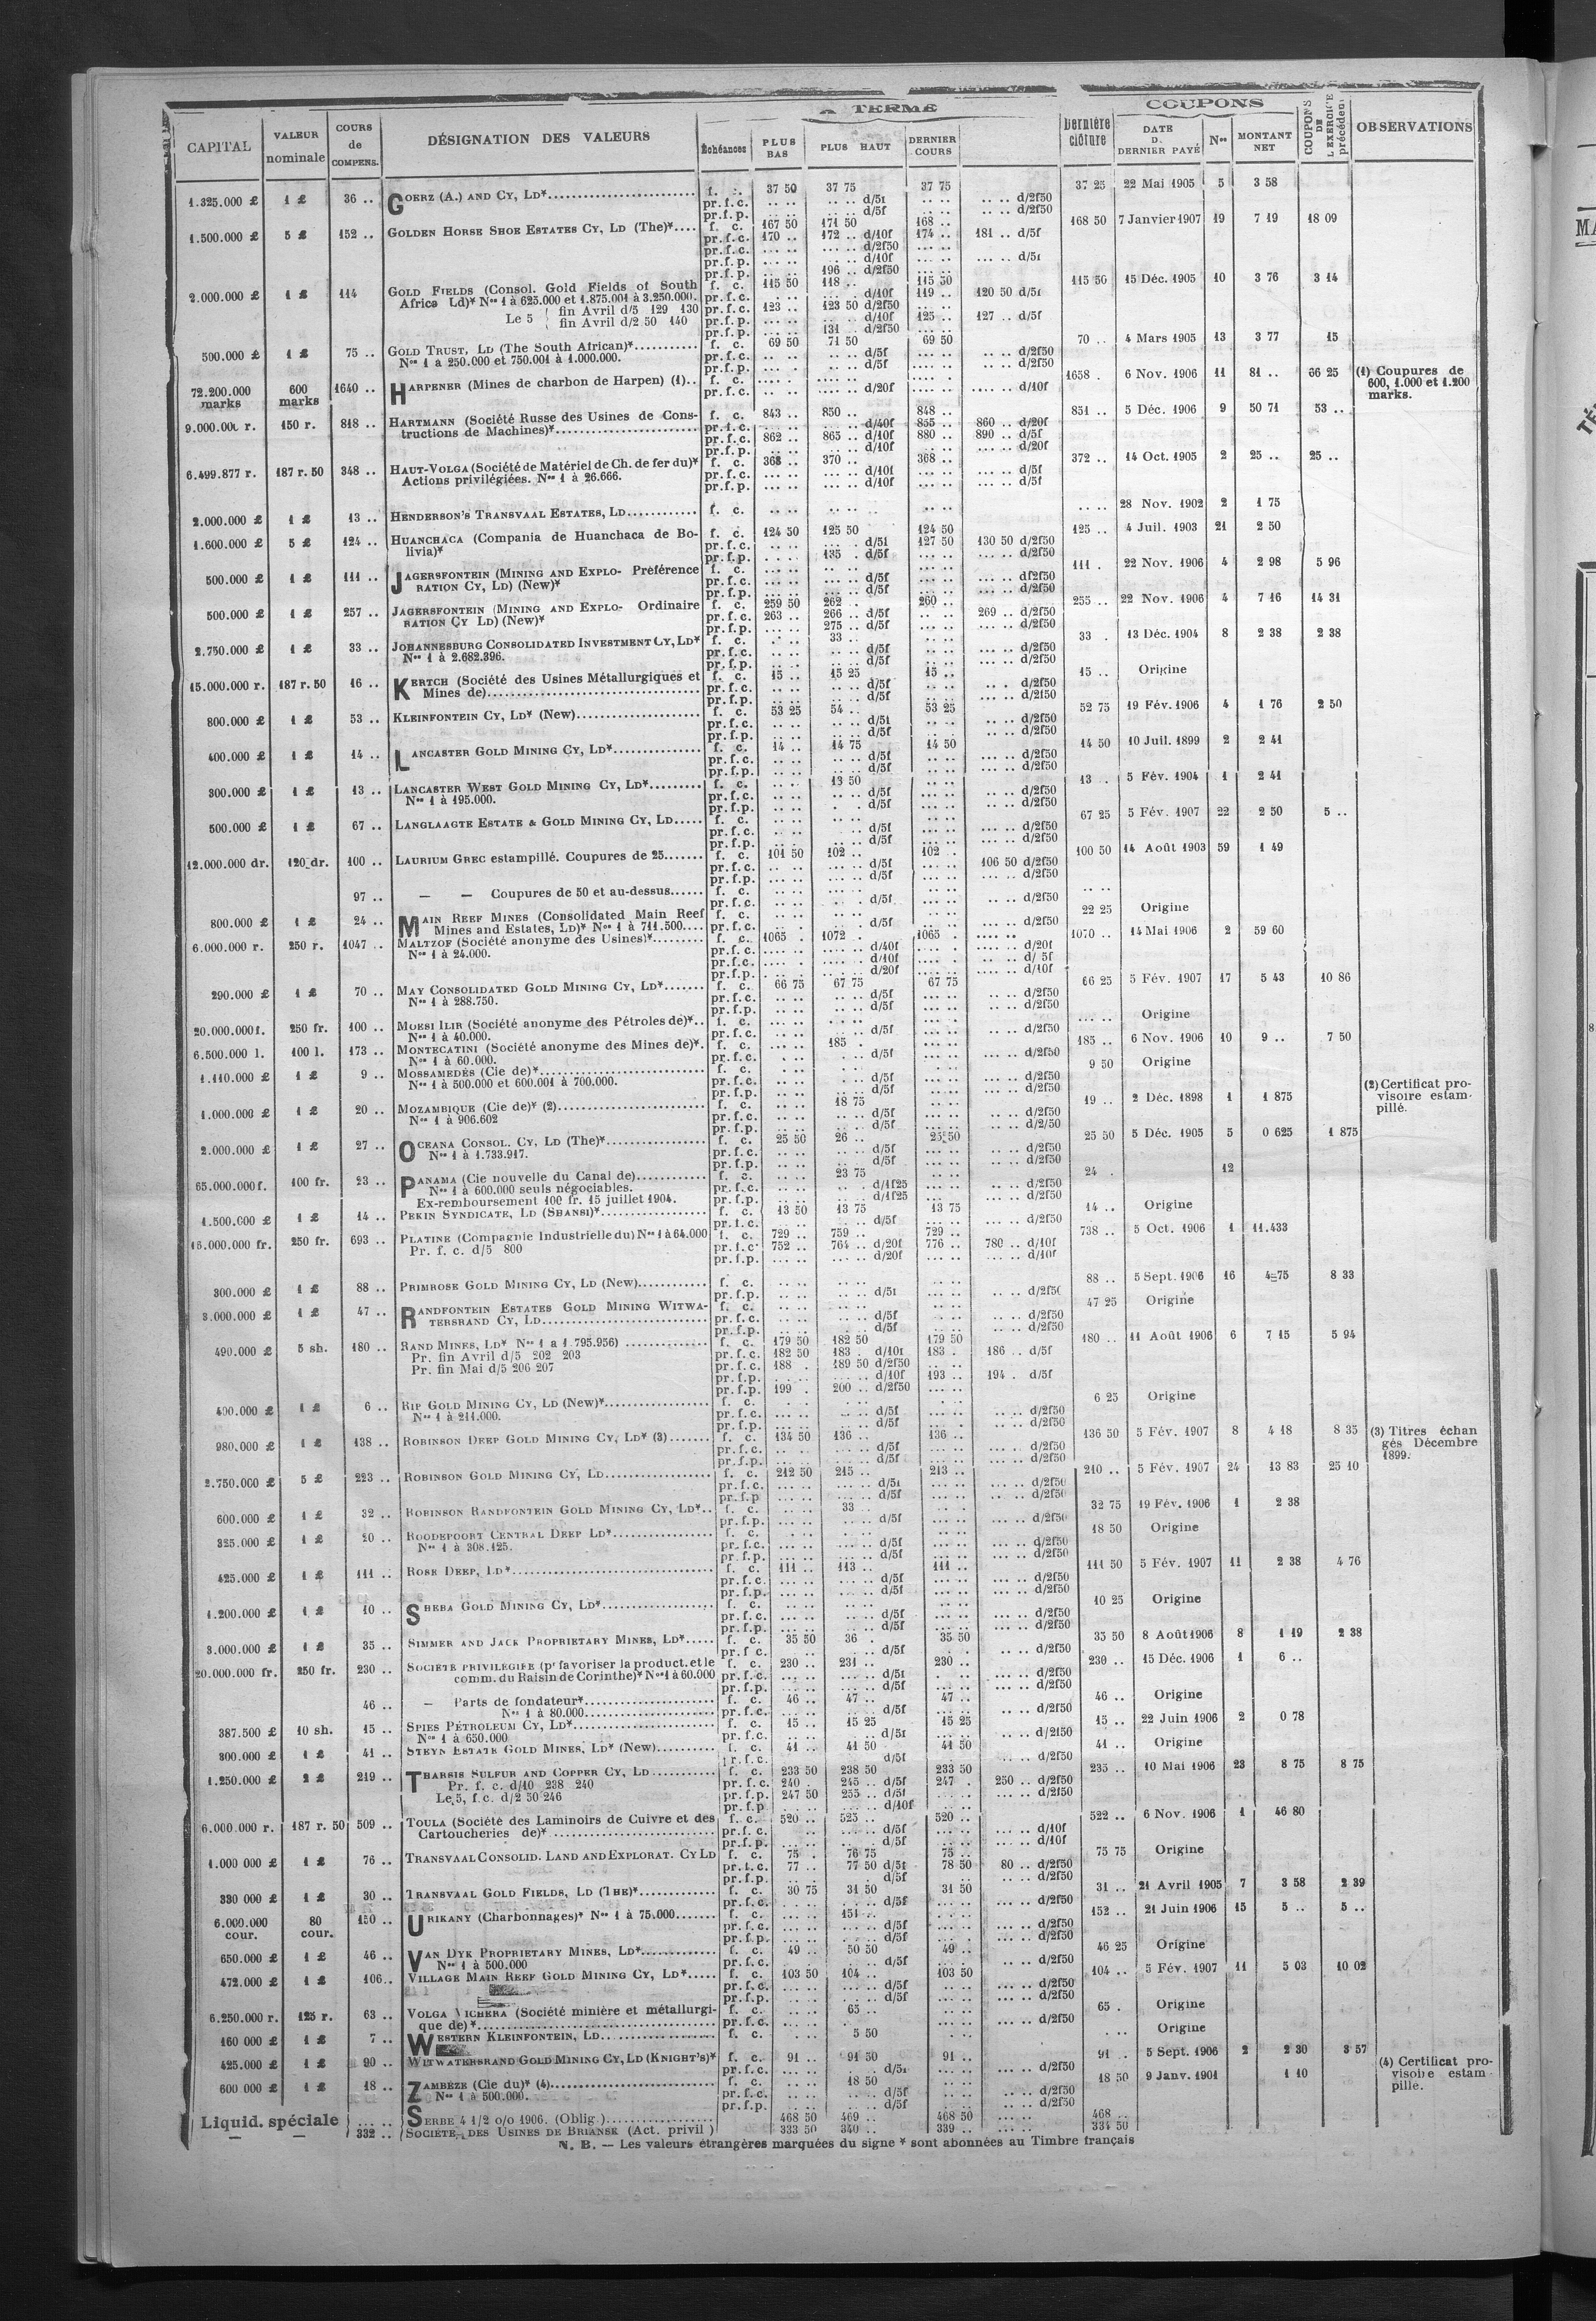 A TERME
COUPONS
CAPITAL | VALEUR nominale | COURS de COMPENS. | DÉSIGNATION DES VALEURS | Échéances | PLUS BAS | PLUS HAUT | DERNIER COURS | Dernière clôture | DATE D. DERNIER PAYÉ | Nos | MONTANT NET | COUPONS DE L'EXERCICE précédent | OBSERVATIONS
1.325.000 £ | 1 £ | 36 .. | GOERZ (A.) AND CY, LD* | f. c. | 37 50 | 37 75 | 37 75 | 37 25 | 22 Mai 1905 | 5 | 3 58
pr.f.c. d/5f d/2f50
pr.f.p. d/5f d/2f50
1.500.000 £ | 5 £ | 152 .. | GOLDEN HORSE SHOE ESTATES CY, LD (The)* | f. c. | 167 50 | 171 50 | 168 .. | 168 50 | 7 Janvier 1907 | 19 | 7 19 | 18 09
pr.f.c. 170 .. 172 .. d/10f 174 .. 181 .. d/5f
pr.f.c. d/2f50
pr.f.p. d/10f d/5f
pr.f.p. 196 .. d/2f50
2.000.000 £ | 1 £ | 114 | GOLD FIELDS (Consol. Gold Fields of South | f. c. | 115 50 | 118 .. | 115 50 | 115 50 | 15 Déc. 1905 | 10 | 3 76 | 3 14
Africa Ld)* Nos 1 à 625.000 et 1.875.001 à 3.250.000. pr.f.c. d/10f 119 .. 120 50 d/5f
Le 5 fin Avril d/5 129 130 pr.f.c. 123 .. 123 50 d/2f50
fin Avril d/2 50 140 pr.f.p. d/10f 125 .. 127 .. d/5f
pr.f.p. 131 .. d/2f50
500.000 £ | 1 £ | 75 .. | GOLD TRUST, LD (The South African)* | f. c. | 69 50 | 71 50 | 69 50 | 70 .. | 4 Mars 1905 | 13 | 3 77 | 15
Nos 1 à 250.000 et 750.001 à 1.000.000. pr.f.c. d/5f d/2f50
pr.f.p. d/5f d/2f50
72.200.000 marks | 600 marks | 1640 .. | HARPENER (Mines de charbon de Harpen) (1) | f. c. | 1658 . | 6 Nov. 1906 | 11 | 81 .. | 66 25 | (1) Coupures de 600, 1.000 et 1.200 marks.
pr.f.c. d/20f d/10f
9.000.000 r. | 150 r. | 818 .. | HARTMANN (Société Russe des Usines de Cons- | f. c. | 843 .. | 850 .. | 848 .. | 851 .. | 5 Déc. 1906 | 9 | 50 71 | 53 ..
tructions de Machines)* pr.f.c. d/40f 855 .. 860 .. d/20f
pr.f.c. 862 .. 865 .. d/10f 880 .. 890 .. d/5f
pr.f.p. d/10f d/20f
6.499.877 r. | 187 r. 50 | 348 .. | HAUT-VOLGA (Société de Matériel de Ch. de fer du)* | f. c. | 368 .. | 370 .. | 368 .. | 372 .. | 14 Oct. 1905 | 2 | 25 .. | 25 ..
Actions privilégiées. Nos 1 à 26.666. pr.f.c. d/10f d/5f
pr.f.p. d/10f d/5f
2.000.000 £ | 1 £ | 13 .. | HENDERSON'S TRANSVAAL ESTATES, LD | f. c. | 28 Nov. 1902 | 2 | 1 75
1.600.000 £ | 5 £ | 124 .. | HUANCHACA (Compania de Huanchaca de Bo- | f. c. | 124 50 | 125 50 | 124 50 | 125 .. | 4 Juil. 1903 | 21 | 2 50
livia)* pr.f.c. d/5f 127 50 130 50 d/2f50
pr.f.p. 135 . d/5f d/2f50
500.000 £ | 1 £ | 111 .. | JAGERSFONTEIN (MINING AND EXPLO- Préférence | f. c. | 111 . | 22 Nov. 1906 | 4 | 2 98 | 5 96
RATION CY, LD) (New)* pr.f.c. d/5f d/2f50
pr.f.p. d/5f d/2f50
500.000 £ | 1 £ | 257 .. | JAGERSFONTEIN (MINING AND EXPLO- Ordinaire | f. c. | 259 50 | 262 .. | 260 .. | 255 .. | 22 Nov. 1906 | 4 | 7 16 | 14 31
RATION CY LD) (New)* pr.f.c. 263 .. 266 .. d/5f 269 .. d/2f50
pr.f.p. 275 .. d/5f d/2f50
2.750.000 £ | 1 £ | 33 .. | JOHANNESBURG CONSOLIDATED INVESTMENT CY, LD* | f. c. | 33 .. | 33 . | 13 Déc. 1904 | 8 | 2 38 | 2 38
Nos 1 à 2.682.396. pr.f.c. d/5f d/2f50
pr.f.p. d/5f d/2f50
15.000.000 r. | 187 r. 50 | 16 .. | KERTCH (Société des Usines Métallurgiques et | f. c. | 15 .. | 15 25 | 15 .. | 15 .. | Origine
Mines de) pr.f.c. d/5f d/2f50
pr.f.p. d/5f d/2f50
800.000 £ | 1 £ | 53 .. | KLEINFONTEIN CY, LD* (New) | f. c. | 53 25 | 54 .. | 53 25 | 52 75 | 19 Fév. 1906 | 4 | 1 76 | 2 50
pr.f.c. d/5f d/2f50
pr.f.p. d/5f d/2f50
400.000 £ | 1 £ | 14 .. | LANCASTER GOLD MINING CY, LD* | f. c. | 14 .. | 14 75 | 14 50 | 14 50 | 10 Juil. 1899 | 2 | 2 41
pr.f.c. d/5f d/2f50
pr.f.p. d/5f d/2f50
300.000 £ | 1 £ | 13 .. | LANCASTER WEST GOLD MINING CY, LD* | f. c. | 13 50 | 13 .. | 5 Fév. 1904 | 1 | 2 41
Nos 1 à 195.000. pr.f.c. d/5f d/2f50
pr.f.p. d/5f d/2f50
500.000 £ | 1 £ | 67 .. | LANGLAAGTE ESTATE & GOLD MINING CY, LD | f. c. | 67 25 | 5 Fév. 1907 | 22 | 2 50 | 5 ..
pr.f.c. d/5f d/2f50
pr.f.p. d/5f d/2f50
12.000.000 dr. | 120 dr. | 100 .. | LAURIUM GREC estampillé. Coupures de 25 | f. c. | 101 50 | 102 .. | 102 . | 100 50 | 14 Août 1903 | 59 | 1 49
pr.f.c. d/5f 106 50 d/2f50
pr.f.p. d/5f d/2f50
97 .. | — — Coupures de 50 et au-dessus | f. c.
pr.f.c. d/5f d/2f50
800.000 £ | 1 £ | 24 .. | MAIN REEF MINES (Consolidated Main Reef | f. c. | 22 25 | Origine
Mines and Estates, LD)* Nos 1 à 711.500 pr.f.c. d/5f d/2f50
6.000.000 r. | 250 r. | 1047 .. | MALTZOF (Société anonyme des Usines)* | f. c. | 1065 . | 1072 . | 1065 . | 1070 .. | 14 Mai 1906 | 2 | 59 60
Nos 1 à 24.000. pr.f.c. d/40f d/20f
pr.f.c. d/10f d/ 5f
pr.f.p. d/20f d/10f
290.000 £ | 1 £ | 70 .. | MAY CONSOLIDATED GOLD MINING CY, LD* | f. c. | 66 75 | 67 75 | 67 75 | 66 25 | 5 Fév. 1907 | 17 | 5 43 | 10 86
Nos 1 à 288.750. pr.f.c. d/5f d/2f50
pr.f.p. d/5f d/2f50
20.000.000 f. | 250 fr. | 100 .. | MOESI ILIR (Société anonyme des Pétroles de)* | f. c. | Origine
Nos 1 à 40.000. pr.f.c. d/5f d/2f50
6.500.000 l. | 100 l. | 173 .. | MONTECATINI (Société anonyme des Mines de)* | f. c. | 185 . | 185 .. | 6 Nov. 1906 | 10 | 9 .. | 7 50
Nos 1 à 60.000. pr.f.c. d/5f d/2f50
1.110.000 £ | 1 £ | 9 .. | MOSSAMEDÈS (Cie de)* | f. c. | 9 50 | Origine
Nos 1 à 500.000 et 600.001 à 700.000. pr.f.c. d/5f d/2f50
pr.f.p. d/5f d/2f50
1.000.000 £ | 1 £ | 20 .. | MOZAMBIQUE (Cie de)* (2) | f. c. | 18 75 | 19 .. | 2 Déc. 1898 | 1 | 1 875 | (2) Certificat provisoire estampillé.
Nos 1 à 906.602 pr.f.c. d/5f d/2f50
pr.f.p. d/5f d/2/50
2.000.000 £ | 1 £ | 27 .. | OCEANA CONSOL. CY, LD (The)* | f. c. | 25 50 | 26 .. | 25 50 | 25 50 | 5 Déc. 1905 | 5 | 0 625 | 1 875
Nos 1 à 1.733.917. pr.f.c. d/5f d/2f50
pr.f.p. d/5f d/2f50
65.000.000 f. | 100 fr. | 23 .. | PANAMA (Cie nouvelle du Canal de) | f. c. | 23 75 | 24 . | 12
Nos 1 à 600.000 seuls négociables. pr.f.c. d/1f25 d/2f50
Ex-remboursement 100 fr. 15 juillet 1904. pr.f.p. d/1f25 d/2f50
1.500.000 £ | 1 £ | 14 .. | PEKIN SYNDICATE, LD (SHANSI)* | f. c. | 13 50 | 13 75 | 13 75 | 14 .. | Origine
pr.f.c. d/5f d/2f50
16.000.000 fr. | 250 fr. | 693 .. | PLATINE (Compagnie Industrielle du) Nos 1 à 64.000 | f. c. | 729 .. | 759 .. | 729 .. | 738 .. | 5 Oct. 1906 | 1 | 11.433
Pr. f. c. d/5 800 pr.f.c. 752 .. 764 .. d/20f 776 .. 780 .. d/10f
pr.f.p. d/20f d/10f
300.000 £ | 1 £ | 88 .. | PRIMROSE GOLD MINING CY, LD (New) | f. c. | 88 .. | 5 Sept. 1906 | 16 | 4 75 | 8 33
pr.f.p. d/5f d/2f50
3.000.000 £ | 1 £ | 47 .. | RANDFONTEIN ESTATES GOLD MINING WITWA- | f. c. | 47 25 | Origine
TERSRAND CY, LD pr.f.c. d/5f d/2f50
pr.f.p. d/5f d/2f50
490.000 £ | 5 sh. | 180 .. | RAND MINES, LD* Nos 1 à 1.795.956) | f. c. | 179 50 | 182 50 | 179 50 | 180 .. | 11 Août 1906 | 6 | 7 15 | 5 94
Pr. fin Avril d/5 202 203 pr.f.c. 182 50 183 . d/10f 183 . 186 .. d/5f
Pr. fin Mai d/5 206 207 pr.f.c. 188 . 189 50 d/2f50
pr.f.p. d/10f 193 .. 194 . d/5f
pr.f.p. 199 . 200 .. d/2f50
400.000 £ | 1 £ | 6 .. | RIP GOLD MINING CY, LD (New)* | f. c. | 6 25 | Origine
Nos 1 à 211.000. pr.f.c. d/5f d/2f50
pr.f.p. d/5f d/2f50
980.000 £ | 1 £ | 138 .. | ROBINSON DEEP GOLD MINING CY, LD* (3) | f. c. | 134 50 | 136 .. | 136 .. | 136 50 | 5 Fév. 1907 | 8 | 4 18 | 8 35 | (3) Titres échangés Décembre 1899.
pr.f.c. d/5f d/2f50
pr.f.p. d/5f d/2f50
2.750.000 £ | 5 £ | 223 .. | ROBINSON GOLD MINING CY, LD | f. c. | 212 50 | 215 .. | 213 .. | 210 .. | 5 Fév. 1907 | 24 | 13 83 | 25 10
pr.f.c. d/5f d/2f50
pr.f.p d/5f d/2f50
600.000 £ | 1 £ | 32 .. | ROBINSON RANDFONTEIN GOLD MINING CY, LD* | f. c. | 33 .. | 32 75 | 19 Fév. 1906 | 1 | 2 38
pr.f.p. d/5f d/2f50
325.000 £ | 1 £ | 20 .. | ROODEPOORT CENTRAL DEEP LD* | f. c. | 18 50 | Origine
Nos 1 à 308.125. pr.f.c. d/5f d/2f50
pr.f.p. d/5f d/2f50
425.000 £ | 1 £ | 111 .. | ROSE DEEP, LD* | f. c. | 111 .. | 113 .. | 111 .. | 111 50 | 5 Fév. 1907 | 11 | 2 38 | 4 76
pr.f.c. d/5f d/2f50
pr.f.p. d/5f d/2f50
1.200.000 £ | 1 £ | 10 .. | SHEBA GOLD MINING CY, LD* | f. c. | 10 25 | Origine
pr.f.c. d/5f d/2f50
pr.f.p. d/5f d/2f50
3.000.000 £ | 1 £ | 35 .. | SIMMER AND JACK PROPRIETARY MINES, LD* | f. c. | 35 50 | 36 . | 35 50 | 35 50 | 8 Août 1906 | 8 | 1 19 | 2 38
pr.f c. d/5f d/2f50
20.000.000 fr. | 250 fr. | 230 .. | SOCIÉTÉ PRIVILÉGIÉE (pr favoriser la product. et le | f. c. | 230 .. | 231 .. | 230 .. | 230 .. | 15 Déc. 1906 | 1 | 6 ..
comm. du Raisin de Corinthe)* Nos 1 à 60.000 pr.f.c. d/5f d/2f50
pr.f.p. d/5f d/2f50
46 .. | — Parts de fondateur* | f. c. | 46 .. | 47 .. | 47 .. | 46 .. | Origine
Nos 1 à 80.000 pr.f.c. d/5f d/2f50
387.500 £ | 10 sh. | 15 .. | SPIES PÉTROLEUM CY, LD* | f. c. | 15 .. | 15 25 | 15 25 | 15 .. | 22 Juin 1906 | 2 | 0 78
Nos 1 à 650.000 pr.f.c. d/5f d/2f50
300.000 £ | 1 £ | 41 .. | STEYN ESTATE GOLD MINES, LD* (New) | f. c. | 41 .. | 41 50 | 41 50 | 41 .. | Origine
pr.f.c. d/5f d/2f50
1.250.000 £ | 2 £ | 219 .. | THARSIS SULFUR AND COPPER CY, LD | f. c. | 233 50 | 238 50 | 233 50 | 235 .. | 10 Mai 1906 | 23 | 8 75 | 8 75
Pr. f. c. d/10 238 240 pr.f.c. 240 . 245 .. d/5f 247 . 250 .. d/2f50
Le 5, f.c. d/2 50 246 pr.f.p. 247 50 255 .. d/5f d/2f50
pr.f.p d/10f
6.000.000 r. | 187 r. 50 | 509 .. | TOULA (Société des Laminoirs de Cuivre et des | f. c. | 520 .. | 525 .. | 520 .. | 522 .. | 6 Nov. 1906 | 1 | 46 80
Cartoucheries de)* pr.f.c. d/5f d/10f
pr.f.p. d/5f d/10f
1.000 000 £ | 1 £ | 76 .. | TRANSVAAL CONSOLID. LAND AND EXPLORAT. CY LD | f. c. | 75 . | 76 75 | 75 .. | 75 75 | Origine
pr.f.c. 77 .. 77 50 d/5f 78 50 80 .. d/2f50
pr.f.p. d/5f d/2f50
330 000 £ | 1 £ | 30 .. | TRANSVAAL GOLD FIELDS, LD (THE)* | f. c. | 30 75 | 31 50 | 31 50 | 31 .. | 21 Avril 1905 | 7 | 3 58 | 2 39
pr.f.c. d/5f d/2f50
6.000.000 cour. | 80 cour. | 150 .. | URIKANY (Charbonnages)* Nos 1 à 75.000 | f. c. | 151 .. | 152 .. | 21 Juin 1906 | 15 | 5 .. | 5 ..
pr.f.c. d/5f d/2f50
pr.f.p. d/5f d/2f50
650.000 £ | 1 £ | 46 .. | VAN DYK PROPRIETARY MINES, LD* | f. c. | 49 .. | 50 50 | 49 .. | 46 25 | Origine
Nos 1 à 500.000 pr.f.c. d/5f d/2f50
472.000 £ | 1 £ | 106 .. | VILLAGE MAIN REEF GOLD MINING CY, LD* | f. c. | 103 50 | 104 .. | 103 50 | 104 .. | 5 Fév. 1907 | 11 | 5 03 | 10 02
pr.f.c. d/5f d/2f50
pr.f.p. d/5f d/2f50
6.250.000 r. | 125 r. | 63 .. | VOLGA VICHERA (Société minière et métallurgi- | f. c. | 65 .. | 65 . | Origine
que de)* pr.f.c. d/2f50
160 000 £ | 1 £ | 7 .. | WESTERN KLEINFONTEIN, LD | f. c. | 5 50 | Origine
425.000 £ | 1 £ | 90 .. | WITWATERSRAND GOLD MINING CY, LD (KNIGHT'S)* | f. c. | 91 .. | 91 50 | 91 .. | 91 .. | 5 Sept. 1906 | 2 | 2 30 | 3 57
pr.f.c. d/5f d/2f50
600 000 £ | 1 £ | 18 .. | ZAMBÈZE (Cie du)* (4) | f. c. | 18 50 | 18 50 | 9 Janv. 1901 | 1 10 | (4) Certificat provisoire estampillé.
Nos 1 à 500.000. pr.f.c. d/5f d/2f50
pr.f.p. d/5f d/2f50
Liquid. spéciale | SERBE 4 1/2 o/o 1906. (Oblig ) | 468 50 | 469 .. | 468 50 | 468 ..
332 .. | SOCIÉTÉ DES USINES DE BRIANSK (Act. privil ) | 333 50 | 340 .. | 339 .. | 334 50
N. B. — Les valeurs étrangères marquées du signe * sont abonnées au Timbre français